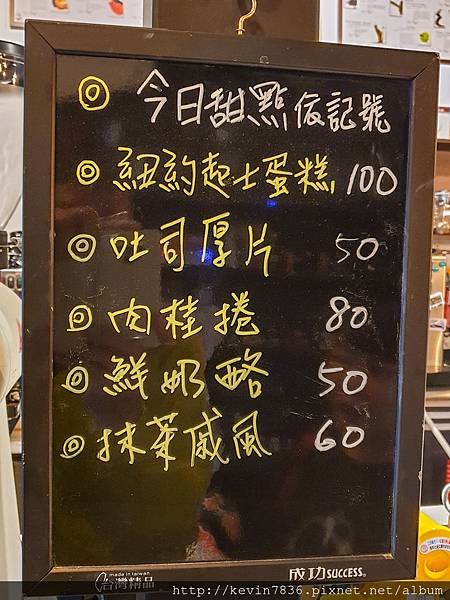 ◎ 今日甜點依記號
◎ 紐約起士蛋糕 100
◎ 吐司厚片 50
◎ 肉桂捲 80
◎ 鮮奶酪 50
◎ 抹茶戚風 60
made in taiwan
台灣精品
成功 SUCCESS
http://kevin7836.pixnet.net/album